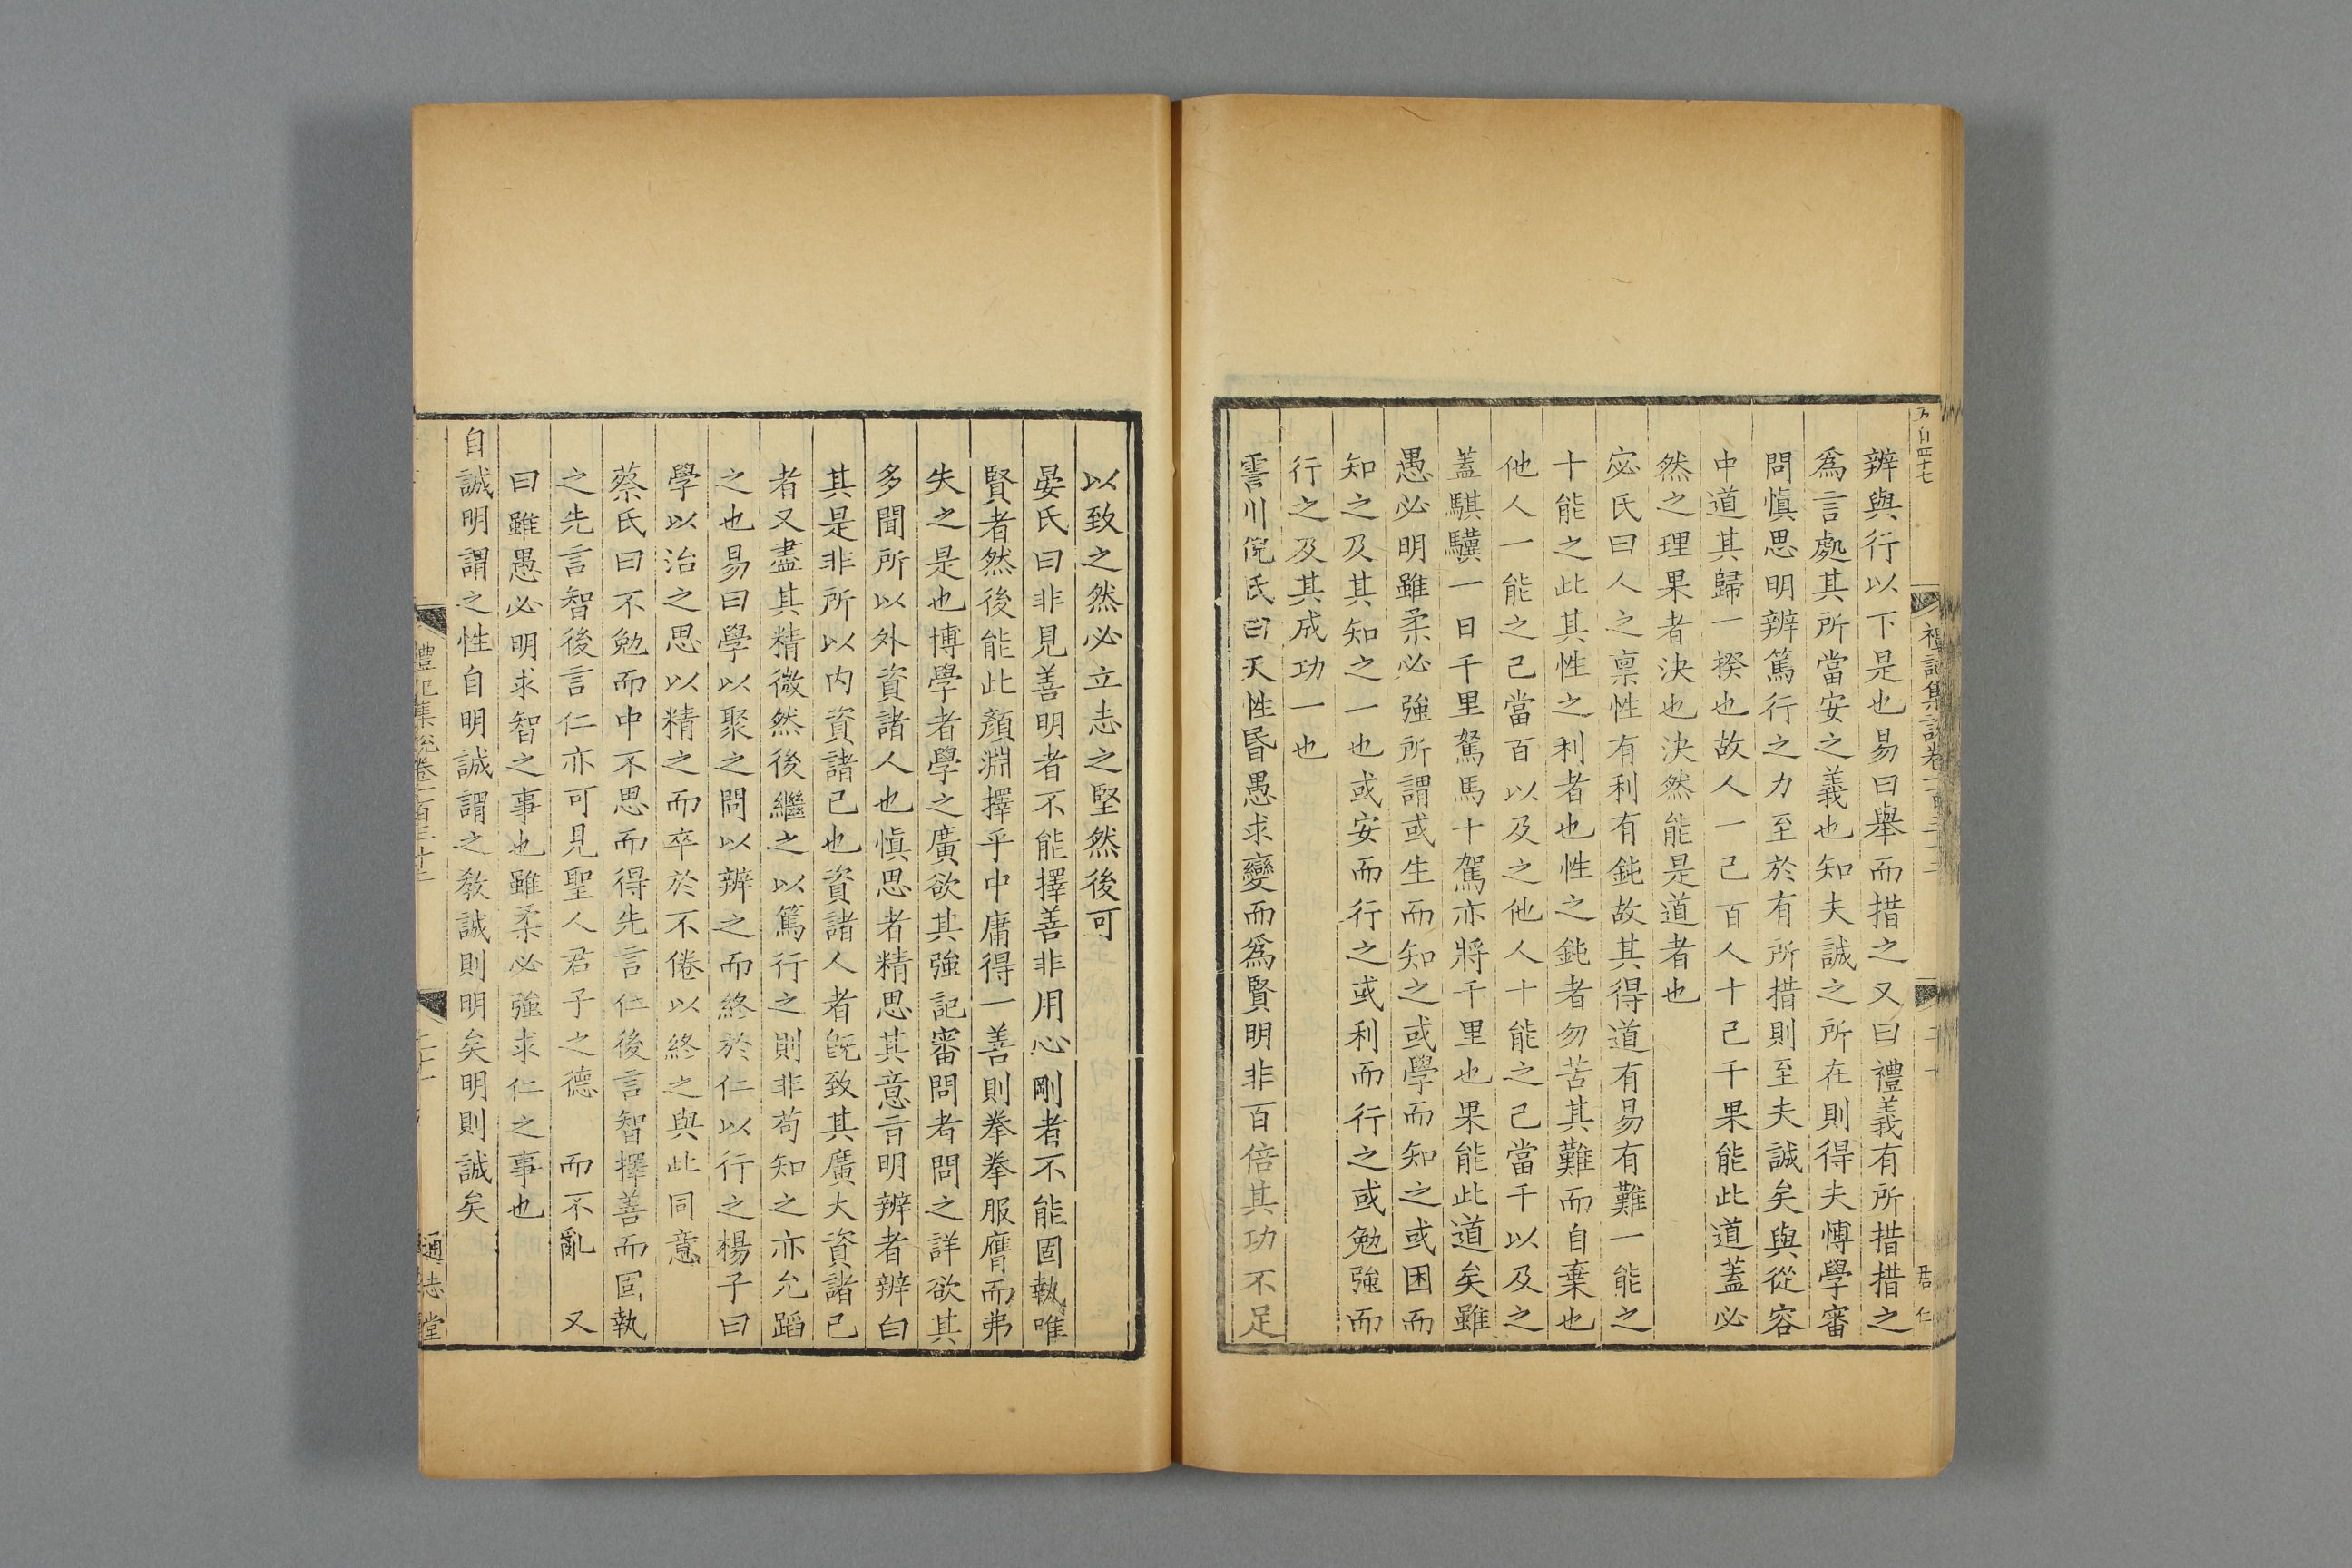 辨與行以下是也易曰舉而措之又曰禮義有所措措之
爲言處其所當安之義也知夫誠之所在則得夫博學審
問愼思明辨篤行之力至於有所措則至夫誠矣與從容
中道其歸一揆也故人一己百人十己千果能此道蓋必
然之理果者決也決然能是道者也
宓氏曰人之禀性有利有鈍故其得道有易有難一能之
十能之此其性之利者也性之鈍者勿苦其難而自棄也
他人一能之己當百以及之他人十能之己當千以及之
蓋騏驥一日千里駑馬十駕亦將千里也果能此道矣雖
愚必明雖柔必強所謂或生而知之或學而知之或困而
知之及其知之一也或安而行之或利而行之或勉強而
行之及其成功一也
霅川倪氏曰天性昏愚求變而爲賢明非百倍其功不足
以致之然必立志之堅然後可
晏氏曰非見善明者不能擇善非用心剛者不能固執唯
賢者然後能此顏淵擇乎中庸得一善則拳拳服膺而弗
失之是也博學者學之廣欲其強記審問者問之詳欲其
多聞所以外資諸人也愼思者精思其意言明辨者辨白
其是非所以內資諸己也資諸人者旣致其廣大資諸己
者又盡其精微然後繼之以篤行之則非苟知之亦允蹈
之也易曰學以聚之問以辨之而終於仁以行之楊子曰
學以治之思以精之而卒於不倦以終之與此同意
蔡氏曰不勉而中不思而得先言仁後言智擇善而固執
之先言智後言仁亦可見聖人君子之德 而不亂 又
曰雖愚必明求智之事也雖柔必強求仁之事也
自誠明謂之性自明誠謂之敎誠則明矣明則誠矣
禮記集說卷一百三十三
通志堂
君仁